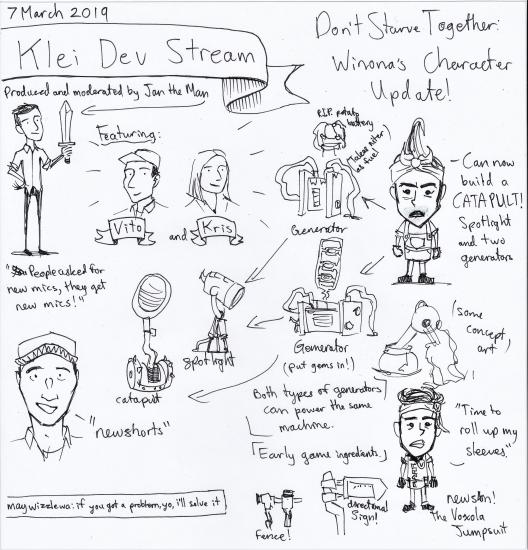 7 March 2019
Klei Dev Stream
Produced and moderated by Jan the Man
Featuring:
Vito
and
Kris
"People asked for
new mics, they get
new mics!"
"newshorts"
Don't Starve Together:
Winona's Character
Update!
R.I.P. potato
battery
Takes niter
as fuel!
Generator
Can now
build a
CATAPULT!
Spotlight
and two
generators
catapult
Spotlight
Gemerator
(put gems in!)
some
concept
art
Both types of generators
can power the same
machine.
Early game ingredients.
"Time to
roll up my
sleeves."
newskin!
The Voxola
Jumpsuit
Fence!
directional
Sign!
maywizzlewa: if you got a problem, yo, i'll solve it